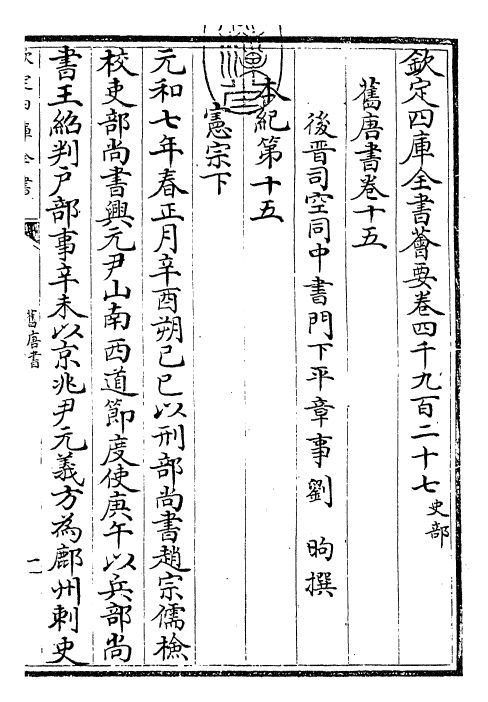 欽定四庫全書薈要卷四千九百二十七 史部
舊唐書卷十五
後晋司空同中書門下平章事劉 昫撰
本紀第十五
憲宗下
元和七年春正月辛酉朔己巳以刑部尚書趙宗儒檢
校吏部尚書興元尹山南西道節度使庚午以兵部尚
書王紹判戶部事辛未以京兆尹元義方為鄜州刺史
欽定四庫全書
舊唐書
一